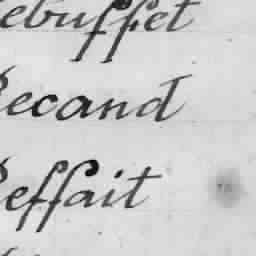 Rebuffet
Recand
Reffait